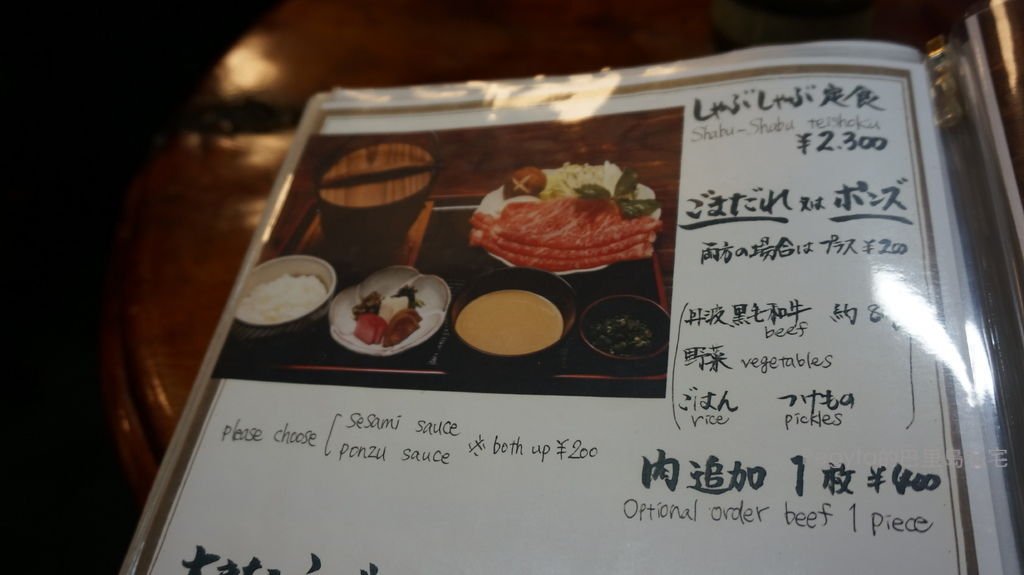 しゃぶしゃぶ定食
Shabu-Shabu teishoku
¥2.300
ごまだれ 又は ポンズ
両方の場合は プラス ¥200
丹波黒毛和牛 約8
beef
野菜 vegetables
ごはん つけもの
rice pickles
please choose sesami sauce
ponzu sauce ※ both up ¥200
肉追加 1枚 ¥400
Optional order beef 1 piece